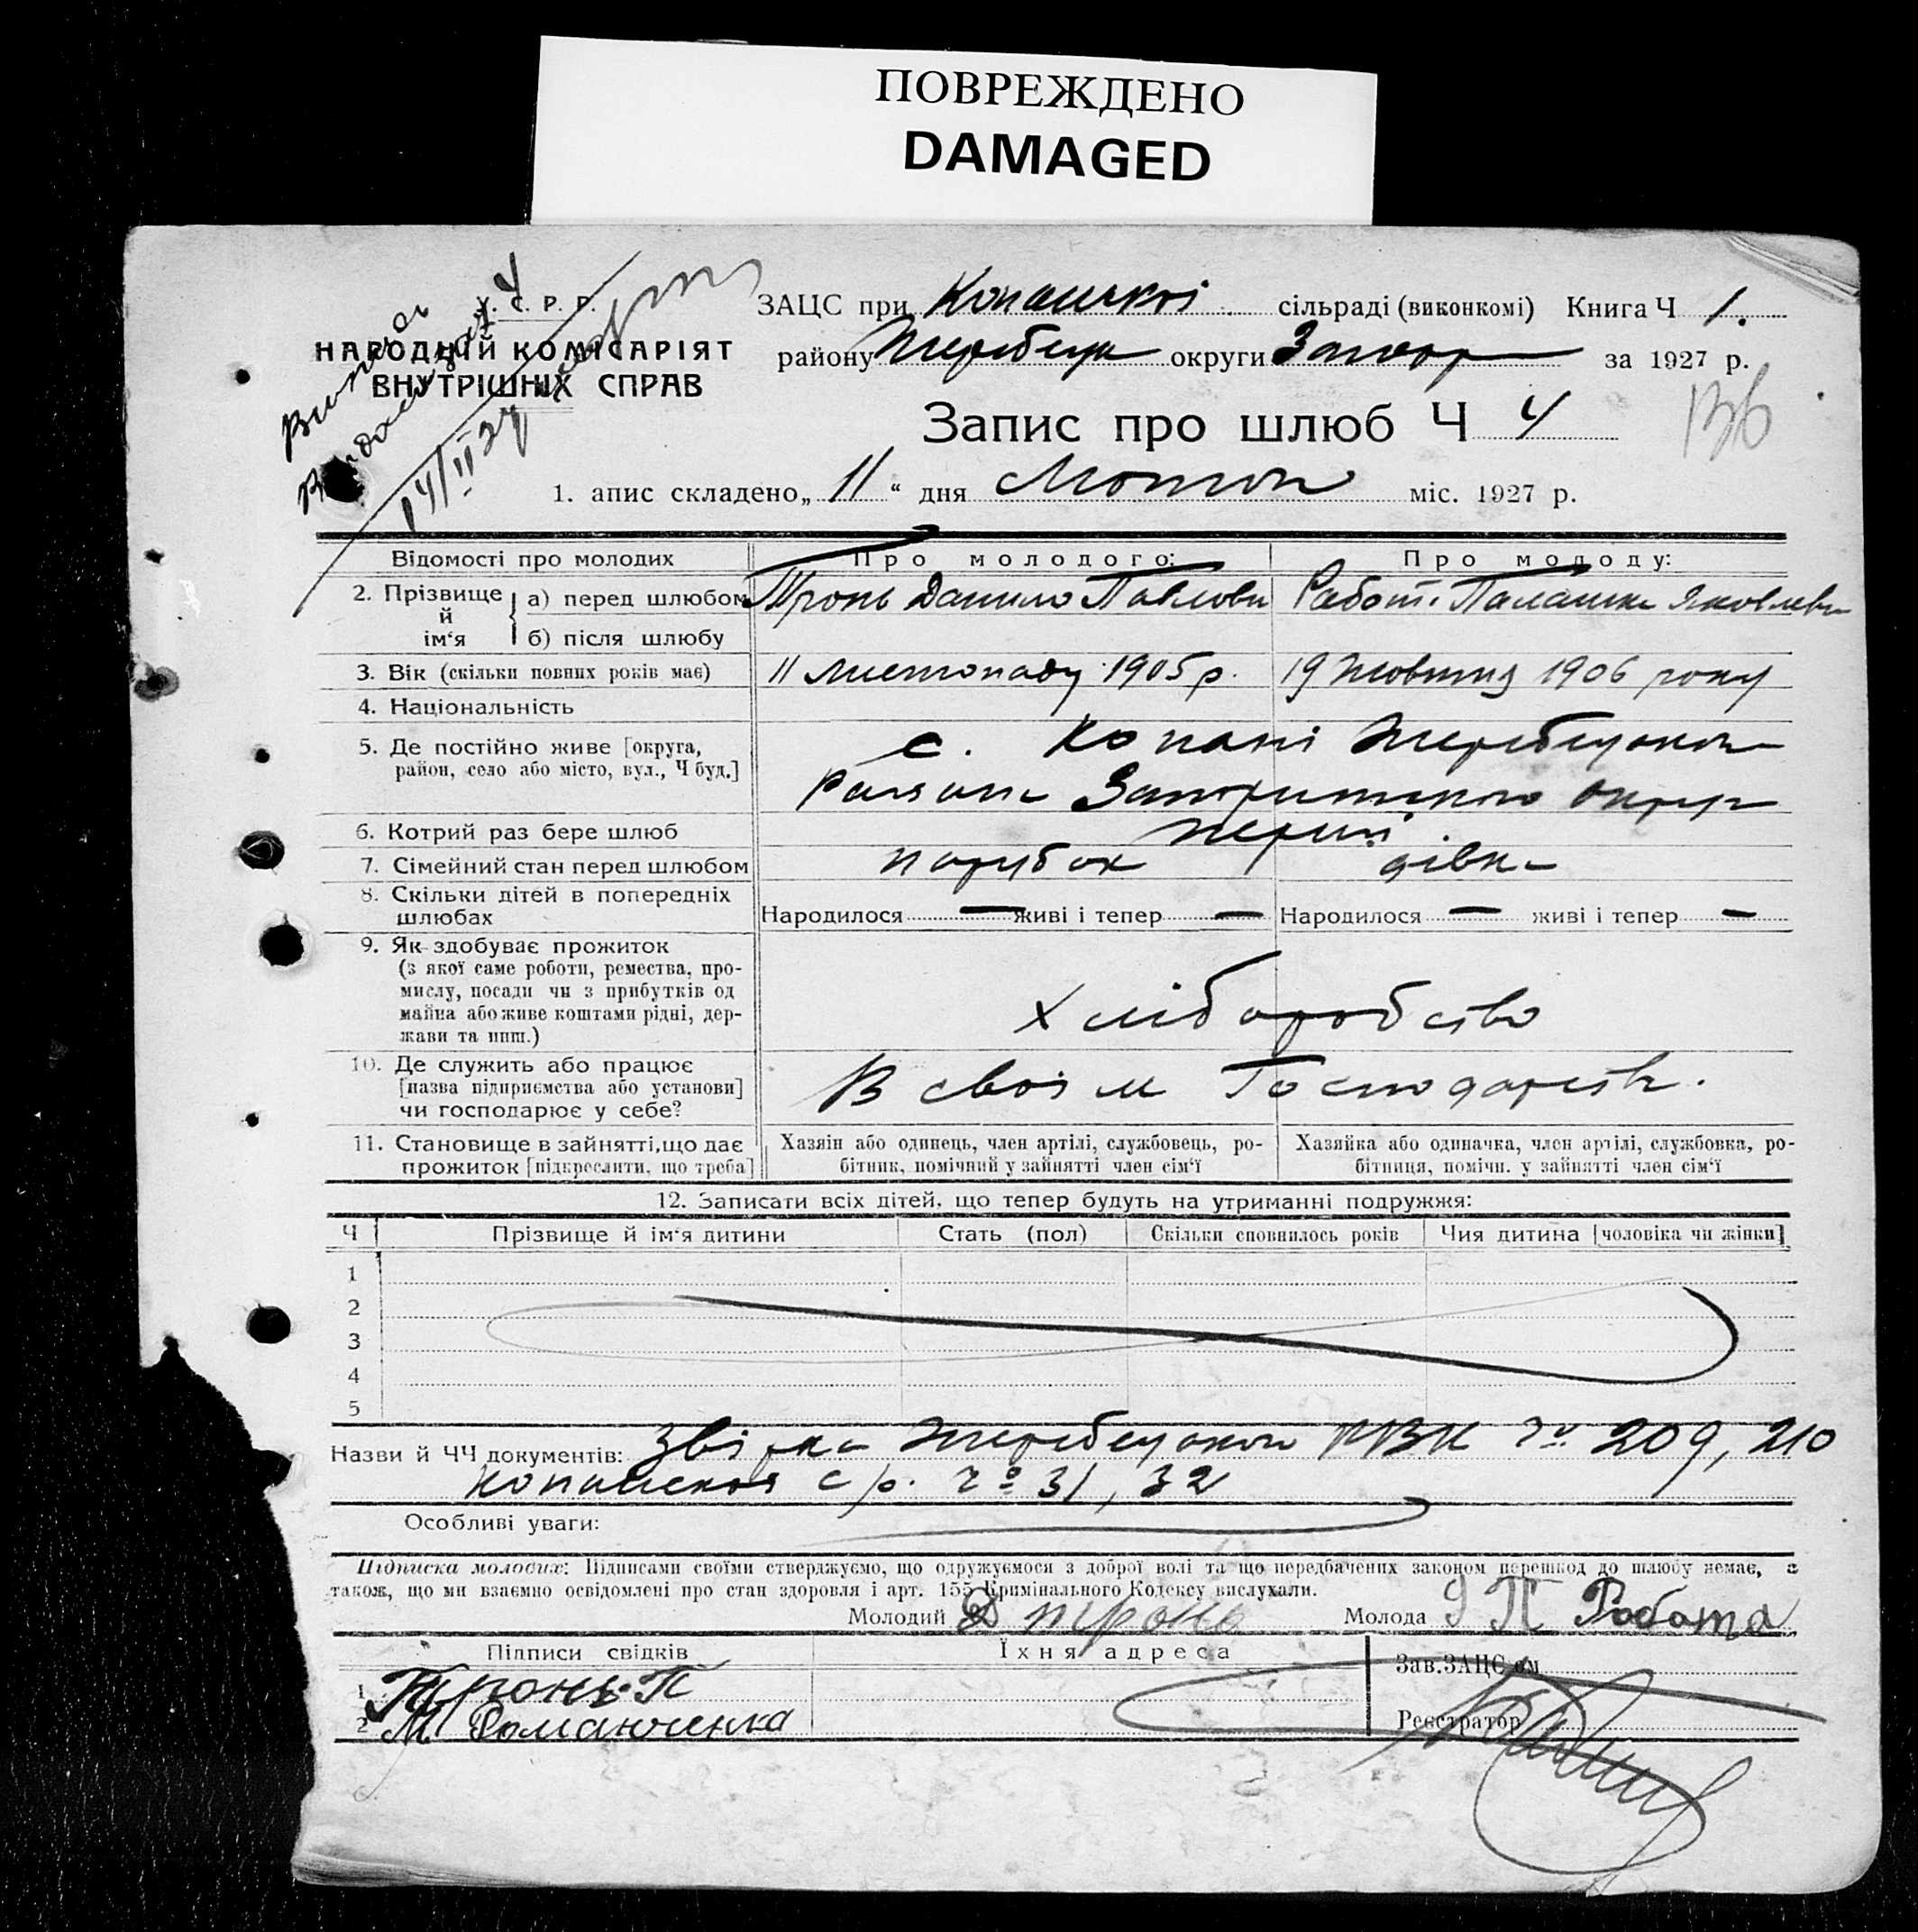 ПОВРЕЖДЕНО
DAMAGED
У. С. Р. Р.
НАРОДНІЙ КОМІСАРІЯТ
ВНУТРІШНІХ СПРАВ
14/II 27
ЗАЦС при Копанській сільраді (виконкомі) Книга Ч 1.
району Жеребецьк округи Запор за 1927 р.
Запис про шлюб Ч 4
136
1. апис складено „ 11 “ дня Лютого міс. 1927 р.
Відомості про молодих
Про молодого:
Про молоду:
2. Прізвище й ім‘я
а) перед шлюбом
Тронь Данило Павлови
Работ. Палашка Яковлевн
б) після шлюбу
3. Вік (скільки повних років має)
11 Листопаду 1905 р.
19 Жовтня 1906 року
4. Національність
5. Де постійно живе [округа,
район, село або місто, вул., Ч буд.]
с. Копані Жеребецького
Району Запорижського округи
6. Котрий раз бере шлюб
перший
7. Сімейний стан перед шлюбом
парубок
дівка
8. Скільки дітей в попередніх
шлюбах
Народилося — живі і тепер —
Народилося — живі і тепер —
9. Як здобуває прожиток
(з якої саме роботи, ремества, про-
мислу, посади чи з прибутків од
майна або живе коштами рідні, дер-
жави та инш.)
Хліборобство
10. Де служить або працює
[назва підприємства або установи]
чи господарює у себе?
В своїм Господарств.
11. Становище в зайнятті, що дає
прожиток [підкреслити, що треба]
Хазяїн або одинець, член артілі, службовець, ро-
бітник, помічний у зайнятті член сім‘ї
Хазяйка або одиначка, член артілі, службовка, ро-
бітниця, помічн. у зайнятті член сім‘ї
12. Записати всіх дітей, що тепер будуть на утриманні подружжя:
Ч
Прізвище й ім‘я дитини
Стать (пол)
Скільки сповнилось років
Чия дитина [чоловіка чи жінки]
1
2
3
4
5
Назви й ЧЧ документів: Звірка Жеребецького РВК Чо 209, 210
Копанської с/р. Чо 31, 32
Особливі уваги:
Підписка молодих: Підписами своїми стверджуємо, що одружуємося з доброї волі та що передбачених законом перешкод до шлюбу немає, а
також, що ми взаємно освідомлені про стан здоровля і арт. 155 Кримінального Кодексу вислухали.
Молодий Д тронь
Молода П Робота
Підписи свідків
Їхня адреса
Зав. ЗАЦС‘ом
1 Тронь П
2 М Романченка
Реєстратор